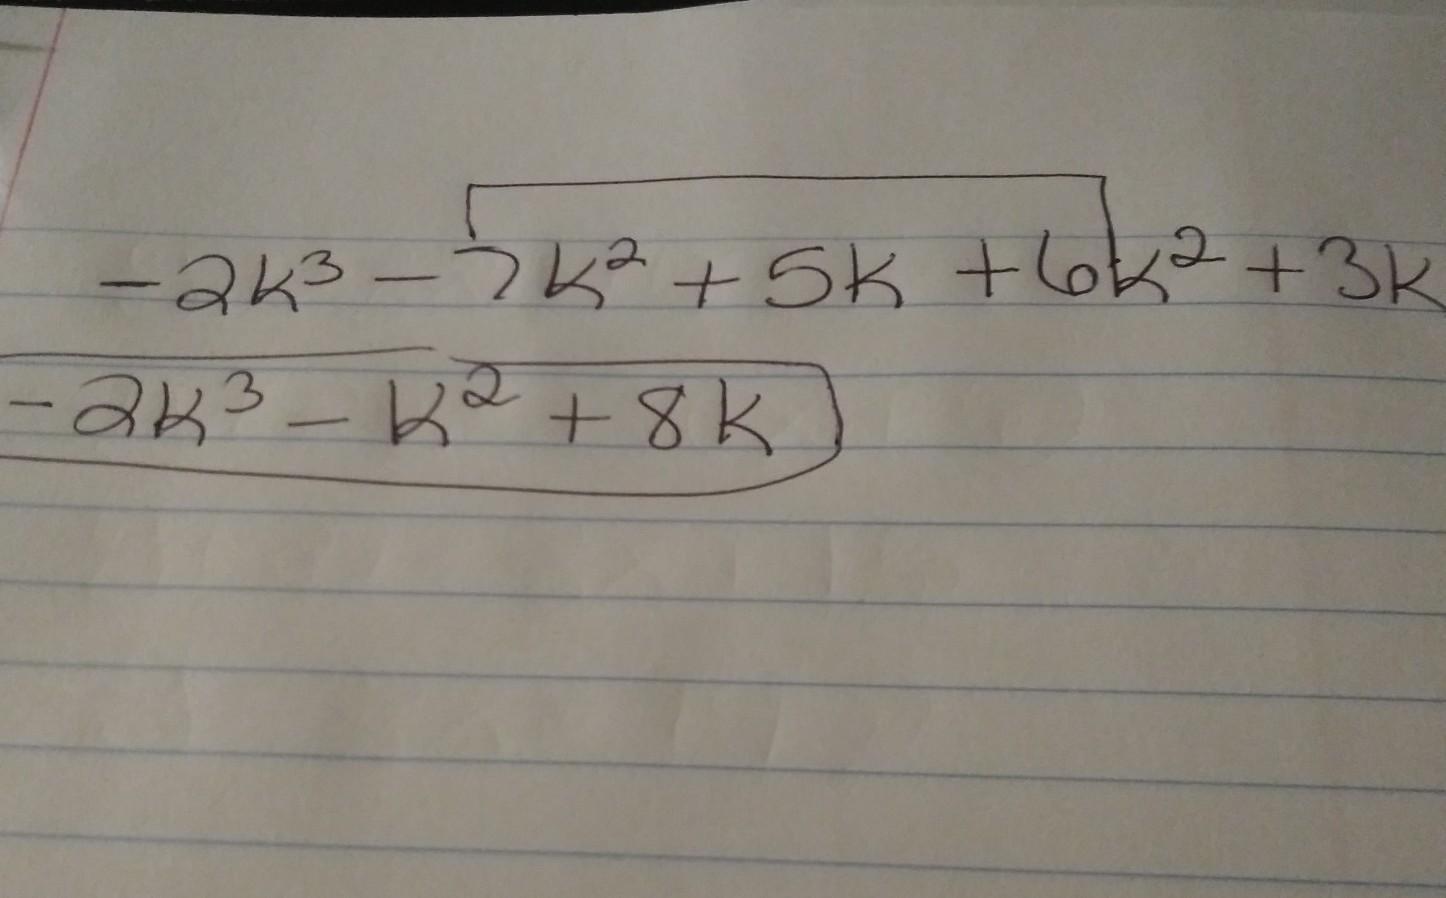 -2k³ - 7k² + 5k + 6k² + 3k
-2k³ - k² + 8k